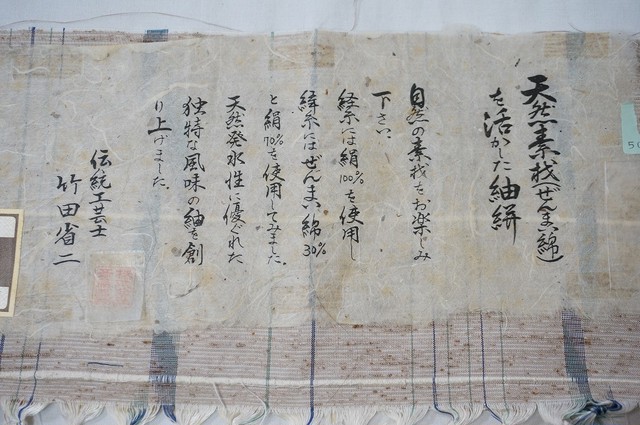 天然素材(ぜんまい綿)
を活かした紬絣
自然の素材をお楽しみ
下さい。
経糸には絹100%を使用し
緯糸にはぜんまい綿30%
と絹70%を使用してみました。
天然発水性に優ぐれた
独特な風味の紬を創
り上げました。
伝統工芸士
竹田省二
50